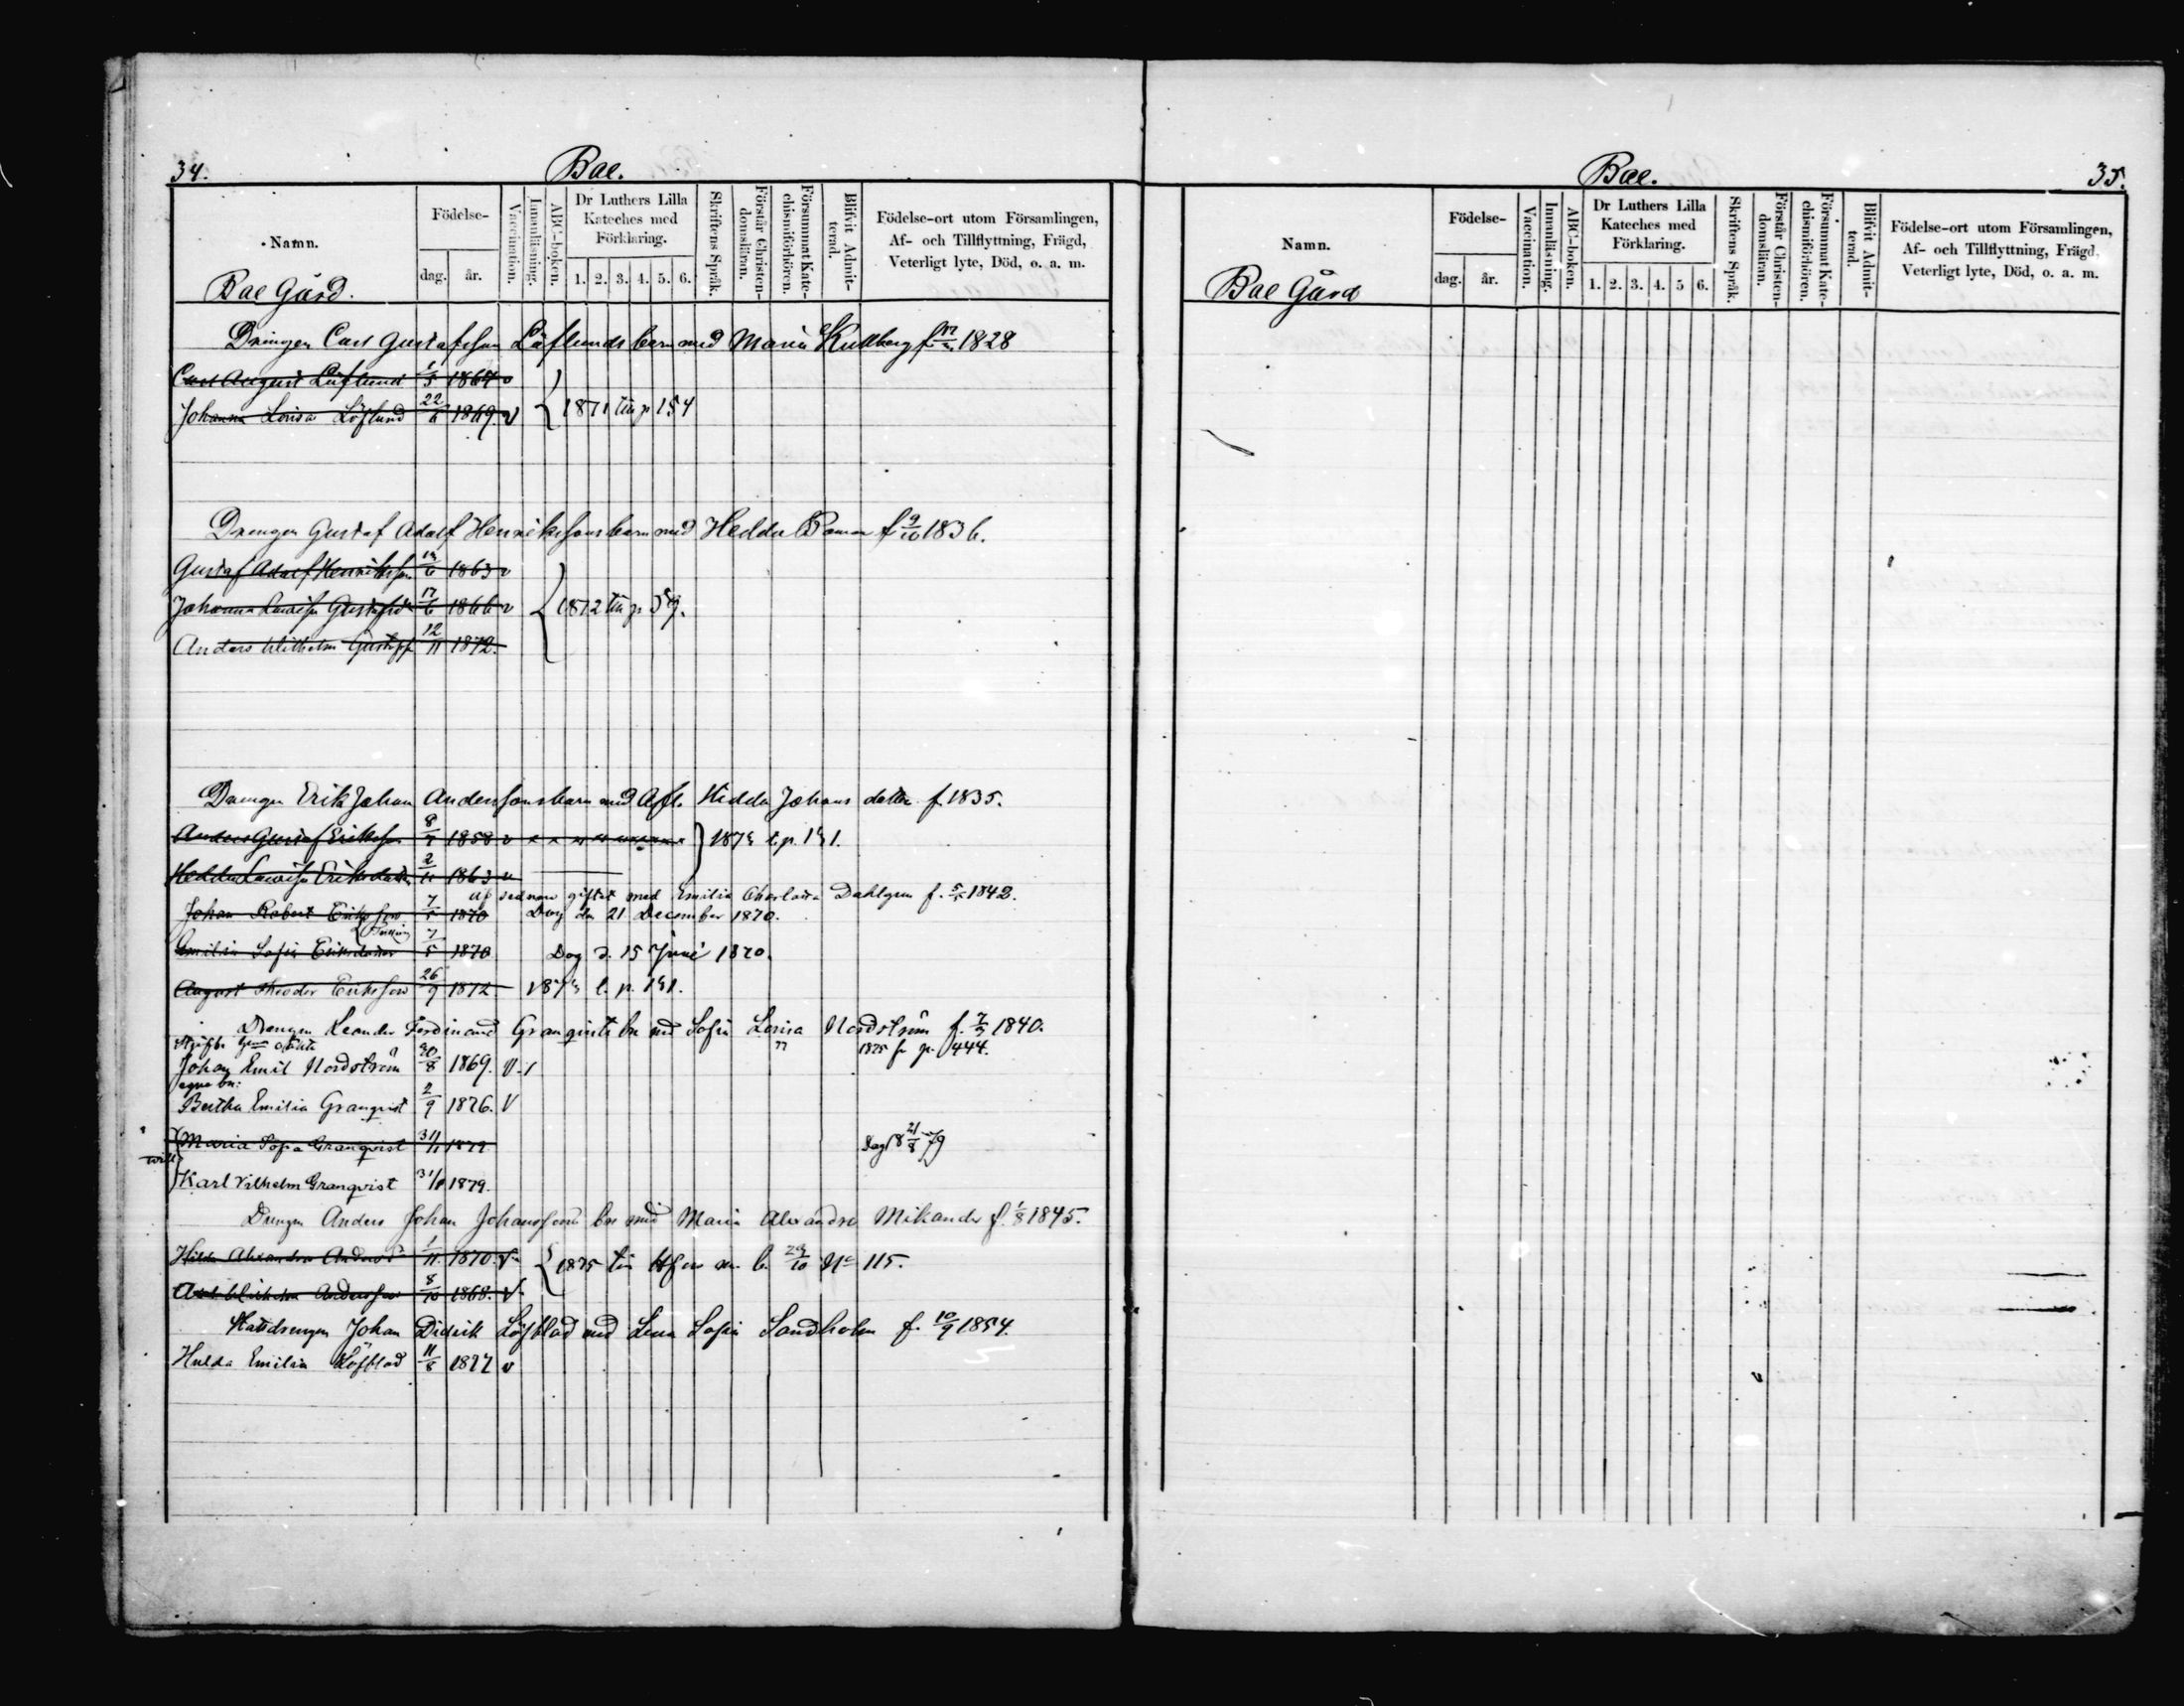 34.
Bae.
Namn.
Födelse-
dag.
år.
Vaccination.
Innanläsning.
ABC-boken.
Dr Luthers Lilla
Kateches med
Förklaring.
1. 2. 3. 4. 5. 6.
Skriftens Språk.
Förstår Christen-
domsläran.
Försummat Kate-
chismiförhören.
Blifvit Admit-
terad.
Födelse-ort utom Församlingen,
Af- och Tillflyttning, Frägd,
Veterligt lyte, Död, o. a. m.
Bae Gård.
Drengen Carl Gustafsson Löflunds barn med Maria Kullberg f. 1828
Carl August Löflund 1/5 1864 v
Johanna Lovisa Löflund 22/6 1869. v 1871 till p 154
Drengen Gustaf Adolf Henrikssons barn med Hedda f 9/10 1836.
Gustaf Adolf Henriksson 1863 v
Johanna Lovisa 17/6 1866 v 1872 till p 59.
Anders Wilhelm 12/11 1872.
Drengen Erik Johan Anderssons barn med Afl. Hedda Johans dotter f. 1835.
Anders Gustaf Eriksson 1858 v
Hedda Lovisa Eriksdotter 1863 v
sednare giftet med Emilia Charlotta Dahlgren f. 1842.
Johan Robert Eriksson 7/5 1870 Dog den 21 December 1870.
Emilia Sofia Eriksdotter 7/5 1870 Dog d. 15 Juni 1870.
August Theodor Eriksson 26/9 1872
Drengen Leander Ferdinand Granqvists bn med Sofia Lovisa Nordström f. 1840.
1875 fr p. 444.
Johan Emil Nordström 30/8 1869. v /
egna bn:
Bertha Emilia Granqvist 2/9 1876. v
Maria Sofia Granqvist 31/1 1879. Dog 21/8 79
Karl Vilhelm Granqvist 31/1 1879.
Drengen Anders Johan Johanssons bn med Maria Alexandra Mikander f. 1/8 1845.
Hilda Alexandra 1/11 1870. v 1875 till No 115.
Anderssson 8/10 1868. v
Johan Didrik Löfblad med Lena Sofia Sandholm f. 10/9 1854.
Hulda Emilia Löfblad 11/8 1877 v
Bae.
35.
Namn.
Födelse-
dag.
år.
Vaccination.
Innanläsning.
ABC-boken.
Dr Luthers Lilla
Kateches med
Förklaring.
1. 2. 3. 4. 5 6.
Skriftens Språk.
Förstår Christen-
domsläran.
Försummat Kate-
chismiförhören.
Blifvit Admit-
terad.
Födelse-ort utom Församlingen,
Af- och Tillflyttning, Frägd,
Veterligt lyte, Död, o. a. m.
Bae Gård